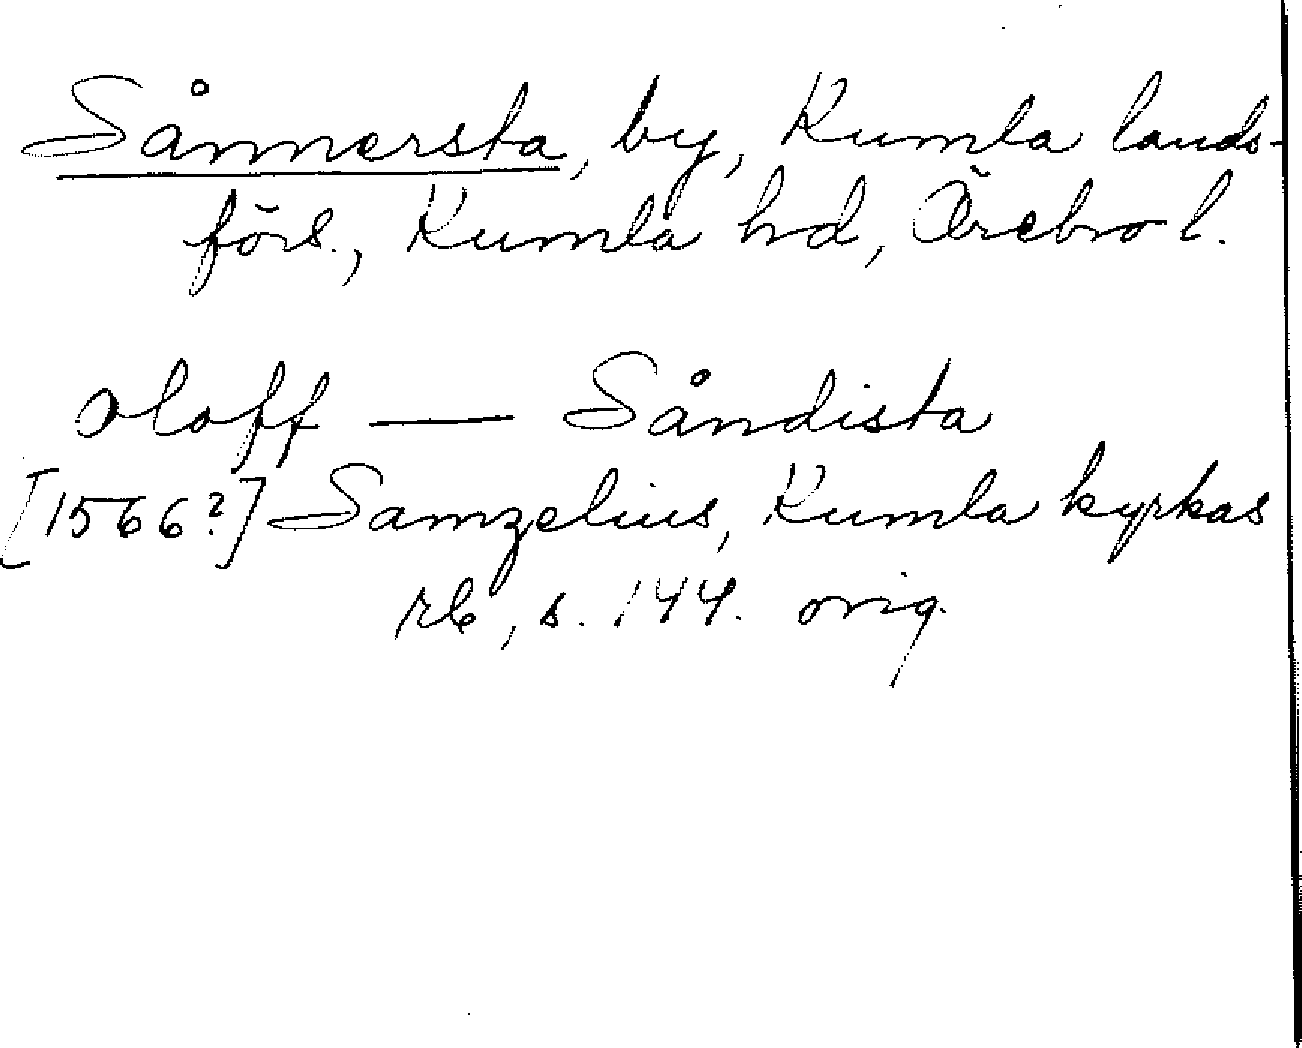 Sånnersta, by, Kumla lands-
förs., Kumla hd, Örebro l.
oloff — Såndista
[1566?] Samzelius, Kumla kyrkas
rb, s. 144. orig.